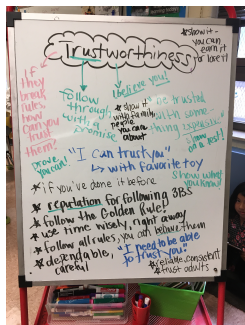 ★show it - you can earn it or lose it
Trustworthiness
If they break rules how can you trust them?
follow through with a promise
I believe you!
★show it with family, people you care about
be trusted with something expensive
prove you can!
"I can trust you"
↳ with favorite toy
show what you know!
★ if you've done it before
★ reputation for following 3Bs
★ follow the Golden Rule
★ use time wisely, right away
★ follow all rules, you can leave them
★ dependable,
careful
"I need to be able to trust you"
★ reliable, consistent
★ trust adults